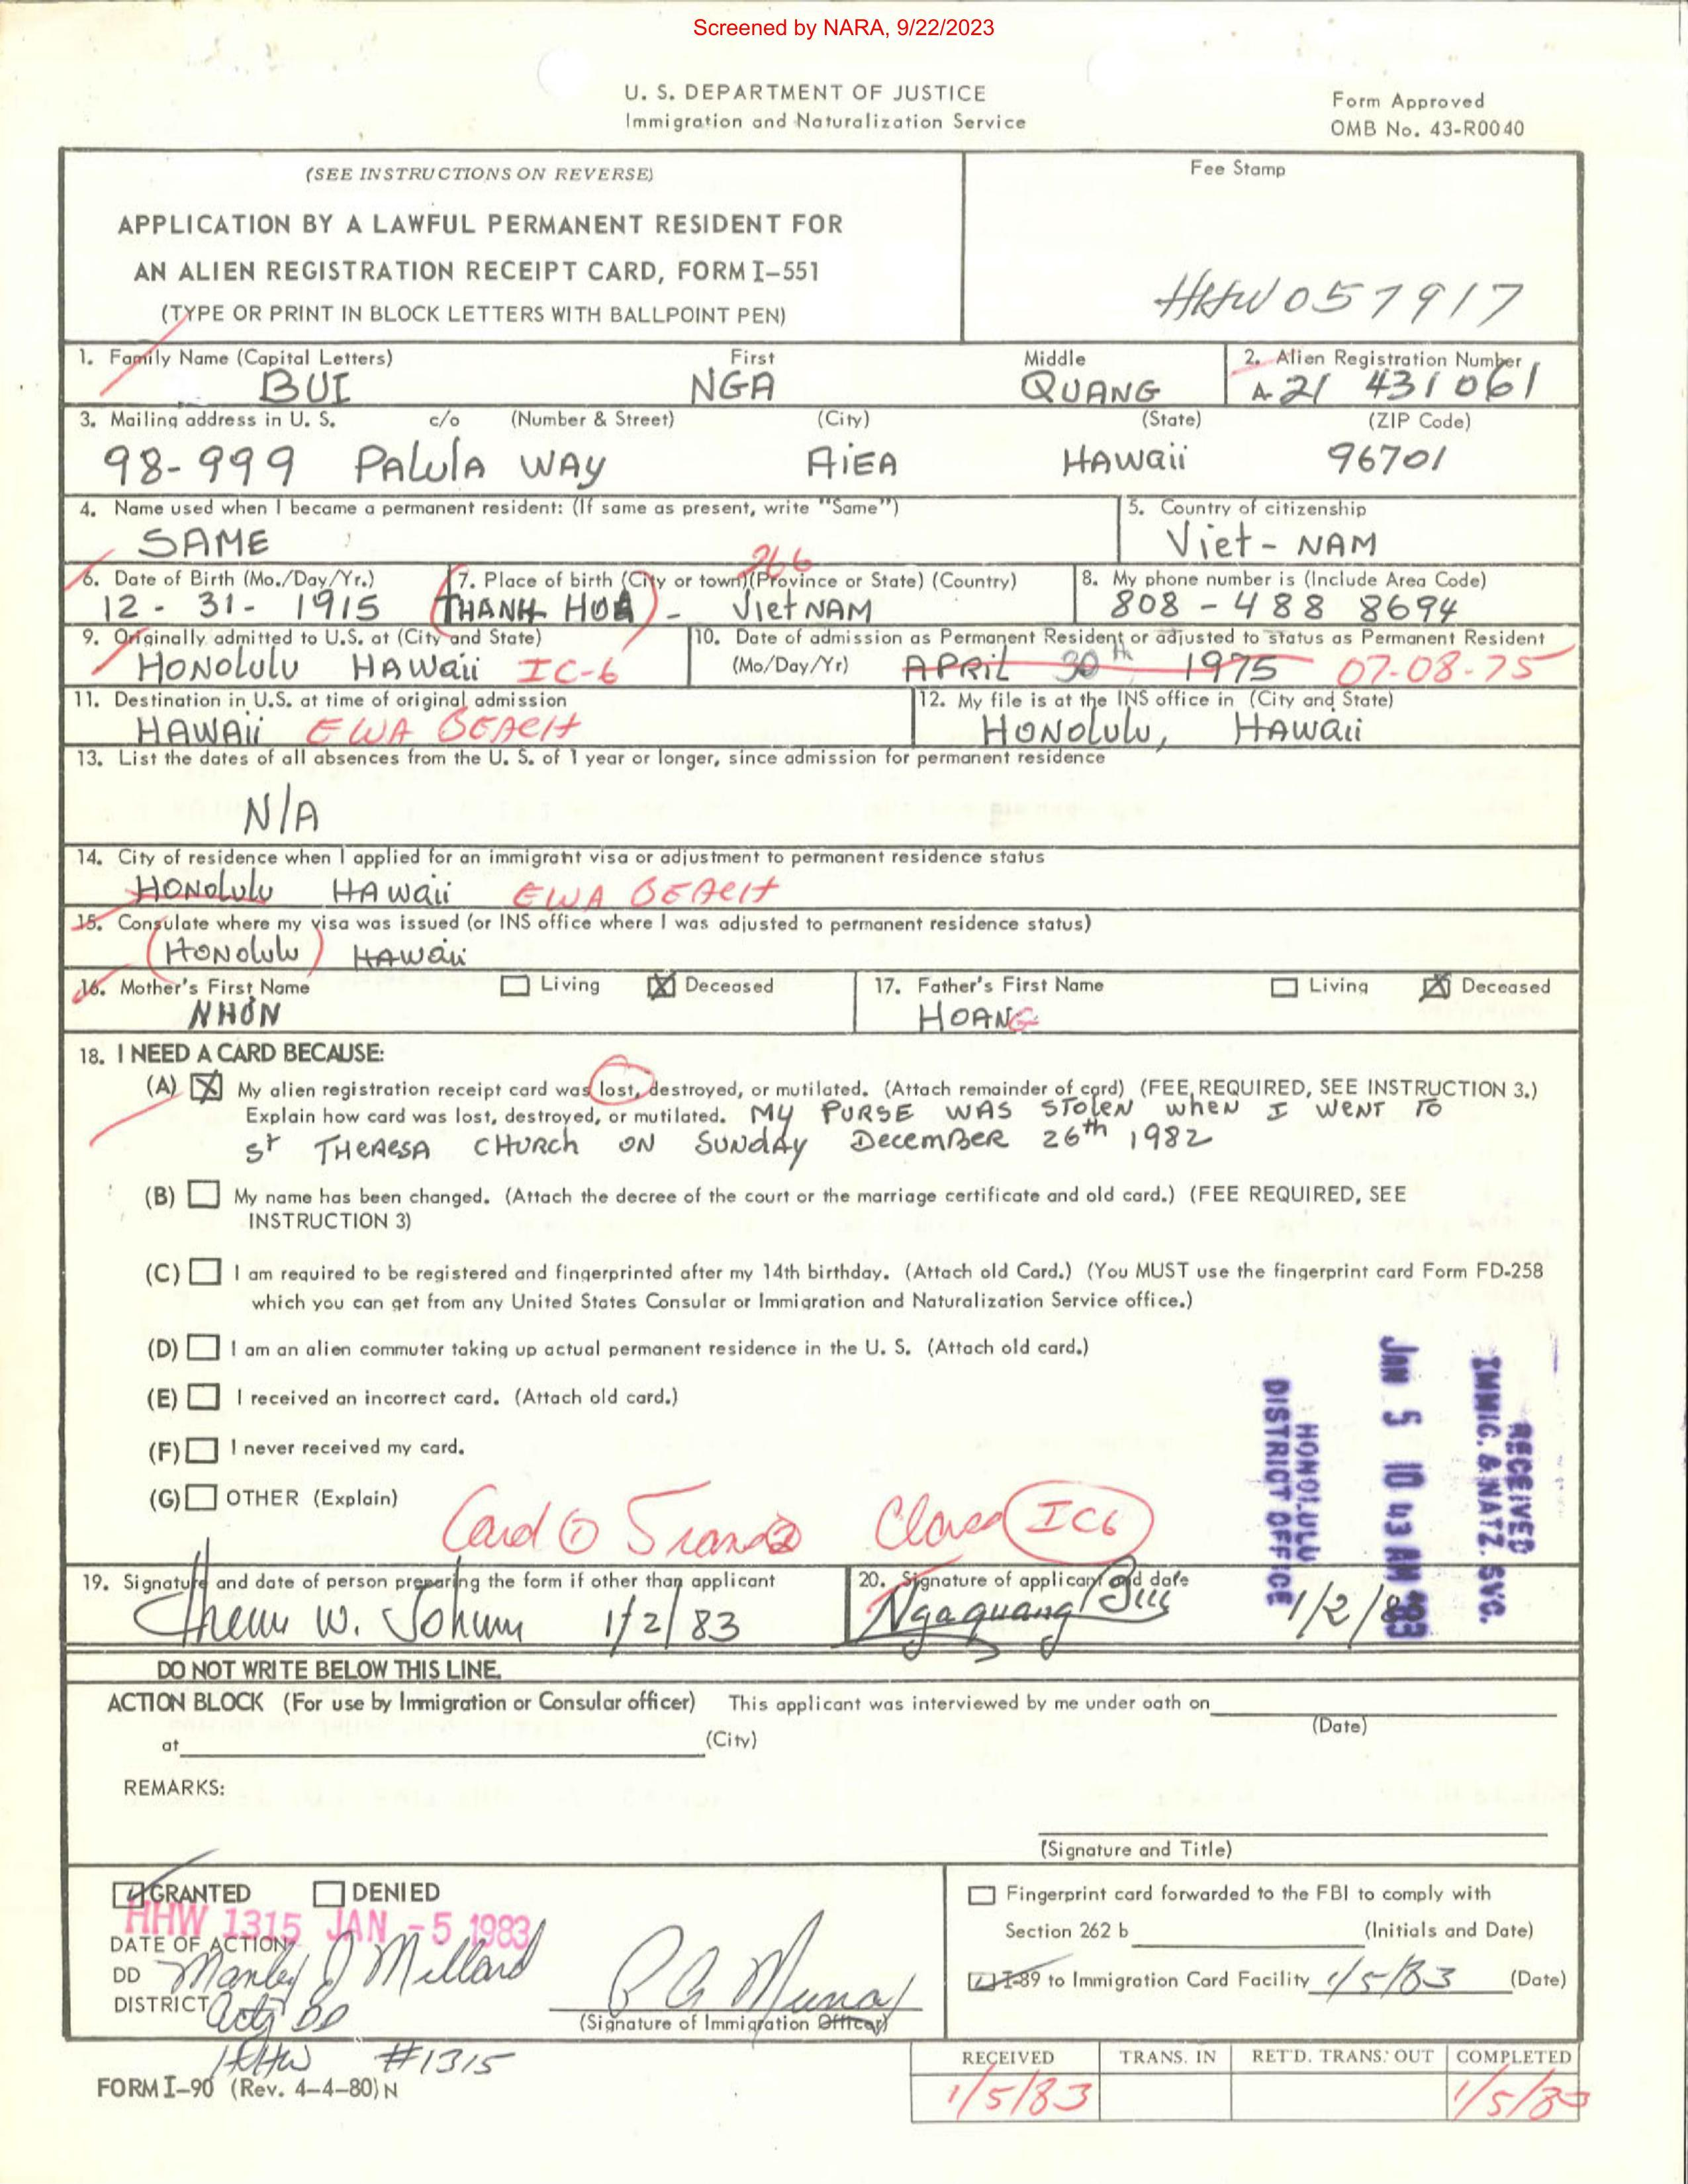 Screened by NARA, 9/22/2023
U. S. DEPARTMENT OF JUSTICE
Immigration and Naturalization Service
Form Approved
OMB No. 43-R0040
(SEE INSTRUCTIONS ON REVERSE)
APPLICATION BY A LAWFUL PERMANENT RESIDENT FOR
AN ALIEN REGISTRATION RECEIPT CARD, FORM I-551
(TYPE OR PRINT IN BLOCK LETTERS WITH BALLPOINT PEN)
Fee Stamp
HHW 057917
1. Family Name (Capital Letters) First Middle 2. Alien Registration Number
BUI NGA QUANG A-21 431 061
3. Mailing address in U. S. c/o (Number & Street) (City) (State) (ZIP Code)
98-999 PALULA WAY AiEA HAWaii 96701
4. Name used when I became a permanent resident: (If same as present, write "Same") 5. Country of citizenship
SAME Viet-NAM
266
6. Date of Birth (Mo./Day/Yr.) 7. Place of birth (City or town)(Province or State) (Country) 8. My phone number is (Include Area Code)
12 - 31 - 1915 THANH HOA - VietNAM 808 - 488 8694
9. Originally admitted to U.S. at (City and State) 10. Date of admission as Permanent Resident or adjusted to status as Permanent Resident
HONOlulu HAWaii IC-6 (Mo/Day/Yr) APRil 30th 1975 07-08-75
11. Destination in U.S. at time of original admission 12. My file is at the INS office in (City and State)
HAWAii EWA BEACH HONOlulu, HAWaii
13. List the dates of all absences from the U. S. of 1 year or longer, since admission for permanent residence
N/A
14. City of residence when I applied for an immigrant visa or adjustment to permanent residence status
HONOlulu HAWaii EWA BEACH
15. Consulate where my visa was issued (or INS office where I was adjusted to permanent residence status)
(HONOlulu) HAWaii
16. Mother's First Name Living Deceased 17. Father's First Name Living Deceased
NHON HOANG
18. I NEED A CARD BECAUSE:
(A) My alien registration receipt card was lost, destroyed, or mutilated. (Attach remainder of card) (FEE REQUIRED, SEE INSTRUCTION 3.)
Explain how card was lost, destroyed, or mutilated. MY PURSE WAS STOLEN when I WENT TO
St THERESA CHURCh ON SUNdAY DeceMBER 26th 1982
(B) My name has been changed. (Attach the decree of the court or the marriage certificate and old card.) (FEE REQUIRED, SEE
INSTRUCTION 3)
(C) I am required to be registered and fingerprinted after my 14th birthday. (Attach old Card.) (You MUST use the fingerprint card Form FD-258
which you can get from any United States Consular or Immigration and Naturalization Service office.)
(D) I am an alien commuter taking up actual permanent residence in the U. S. (Attach old card.)
(E) I received an incorrect card. (Attach old card.)
(F) I never received my card.
(G) OTHER (Explain)
Card Class IC6
RECEIVED
IMMIG. & NATZ. SVC.
JAN 5 10 43 AM '83
HONOLULU
DISTRICT OFFICE
19. Signature and date of person preparing the form if other than applicant 20. Signature of applicant and date
W. 1/2/83 Ngaquang Bui 1/2/83
DO NOT WRITE BELOW THIS LINE.
ACTION BLOCK (For use by Immigration or Consular officer) This applicant was interviewed by me under oath on
(Date)
at (City)
REMARKS:
(Signature and Title)
GRANTED DENIED
HHW 1315 JAN -5 1983
DATE OF ACTION
DD Manley J Millard
DISTRICT Actg DD
(Signature of Immigration Officer)
HHW #1315
Fingerprint card forwarded to the FBI to comply with
Section 262 b (Initials and Date)
I-89 to Immigration Card Facility 1/5/83 (Date)
RECEIVED TRANS. IN RET'D. TRANS. OUT COMPLETED
1/5/83 1/5/83
FORM I-90 (Rev. 4-4-80) N